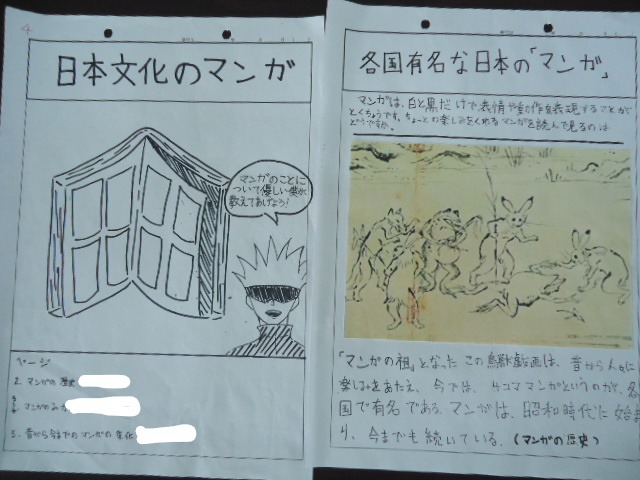 日本文化のマンガ
マンガのことに
ついて優しい僕が
教えてあげよう!
ページ
2. マンガの歴史
マンガの
5. 昔から今までのマンガの変化
各国有名な日本の「マンガ」
マンガは、白と黒だけで表情や動作を表現することが
とくちょうです。ちょっとの楽しみをくれるマンガを読んで見るのは
どうですか。
「マンガの祖」となったこの鳥獣戯画は、昔から人々に
楽しみをあたえ、今では、4コママンガというのが、各
国で有名である。マンガは、昭和時代に始ま
り、今までも続いている。(マンガの歴史)